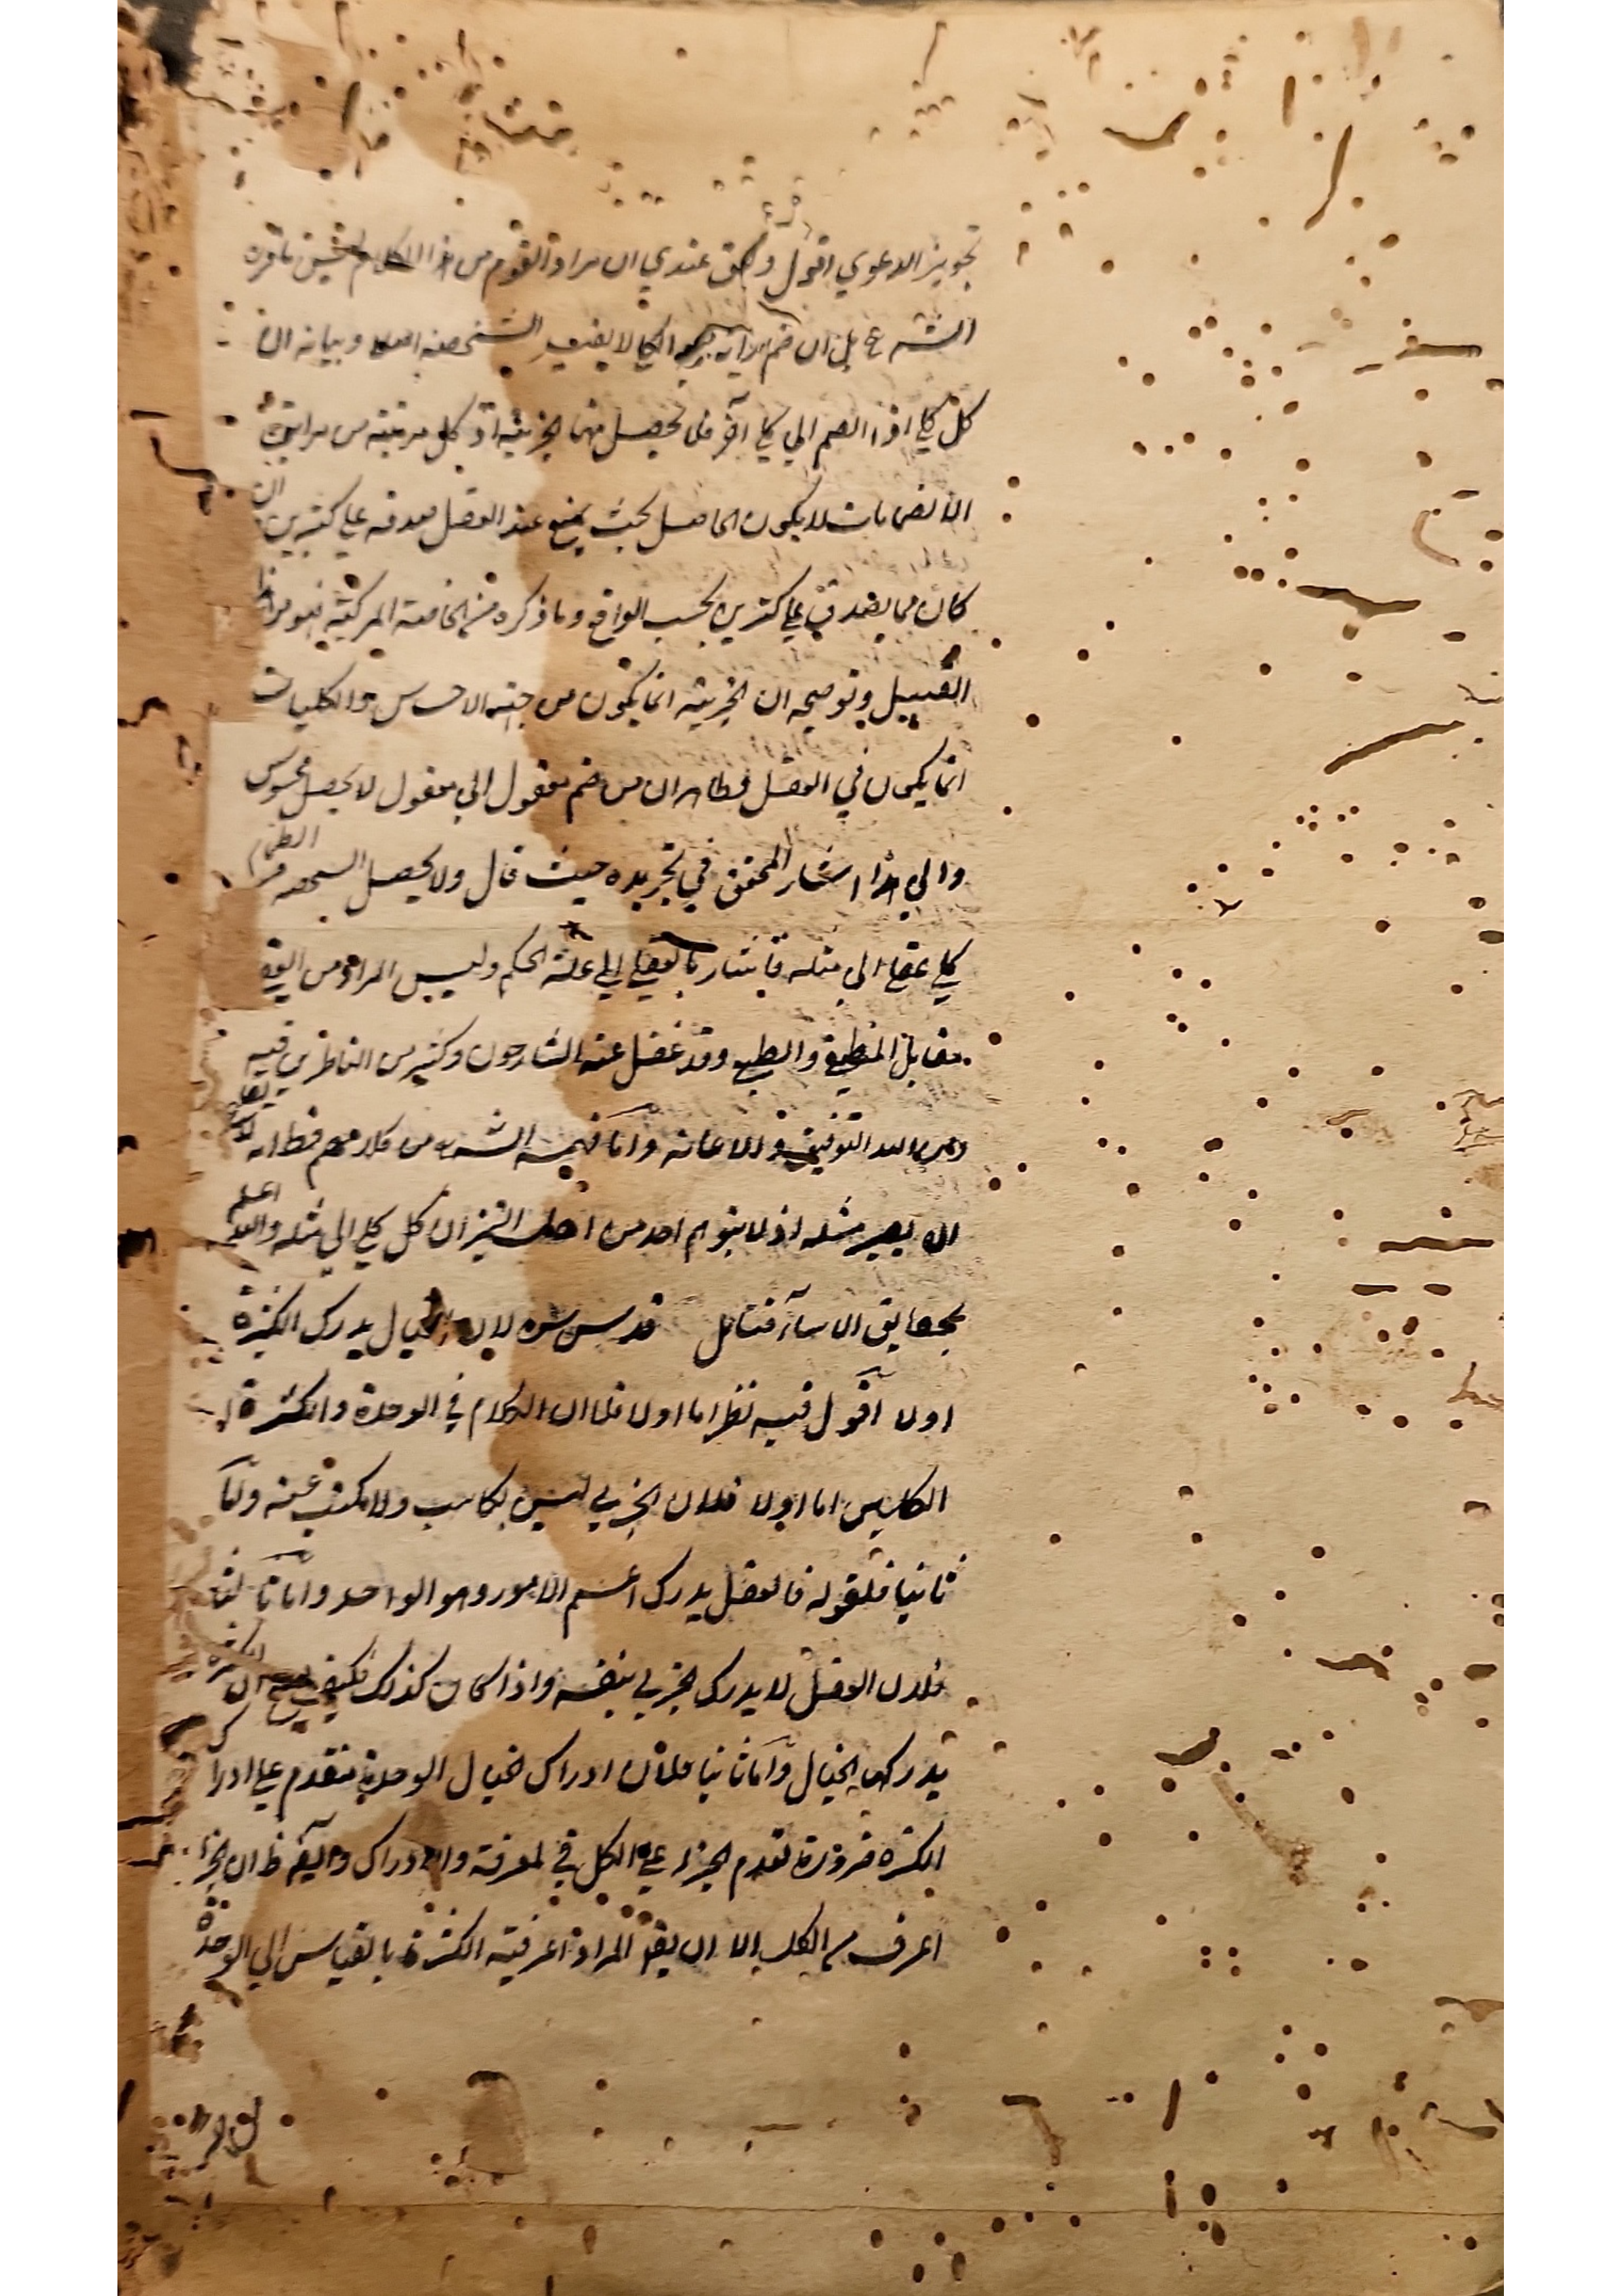 تجويز الدعوي اقول والحق عندي ان مراد القوم من هذا الكلام ليس ما قرره
الش ع بل ان ضم الكلي لا يفيد الشخصية اصلا وبيانه ان
كل كلي اذا انضم الي كلي آخر فلا يحصل منهما الجزئية اذ كل مرتبة من مراتب
الانضمامات لا يكون الحاصل بحيث يمنع عند العقل صدقه علي كثيرين وان
كان مما يصدق علي كثيرين بحسب الواقع وما ذكره من الخاصة المركبة فهو من هذا
القبيل وتوضيحه ان الجزئية انما يكون من جهة الاحساس والكليات
انما يكون في العقل وظاهر ان من ضم معقول الي معقول لا يحصل محسوس
والي هذا اشار المحقق في تجريده حيث قال ولا يحصل التشخص من انضمام
كلي عقلي الي مثله فاشار بالعقلي الي علة الحكم وليس المراد من العقلي
مقابل المنطقي والطبيعي وقد غفل عنه الشارحون وكثير من الناظرين فيه
ومن الله التوفيق والاعانة واما فهمه الش من كلامهم فظ انه لا
ان يصير مثله اذ لا يتوهم احد من اهل التميز ان كل كلي الي مثله والله اعلم
بحقايق الاشياء فتامل قدس سره لان الخيال يدرك الكثرة
اولا اقول فيه نظر اما اولا فلان الكلام في الوحدة والكثرة
الكليين اما اولا فلان الجزيي ليس بكاسب ولا مكتسب عنه واما
ثانيا فلقوله فالعقل يدرك اعم الامور وهو الواحد واما ثالثا
فلان العقل لا يدرك الجزيي بنفسه واذا كان كذلك فكيف يصح ان الكثرة
يدركها الخيال واما ثانيا فلان ادراك الخيال الوحدة متقدم علي ادراك
الكثرة ضرورة تقدم الجزء علي الكل في المعرفة والادراك وايضا ظ ان الجزء
اعرف من الكل الا ان يقم المراد اعرفية الكثرة بالقياس الي الوحدة